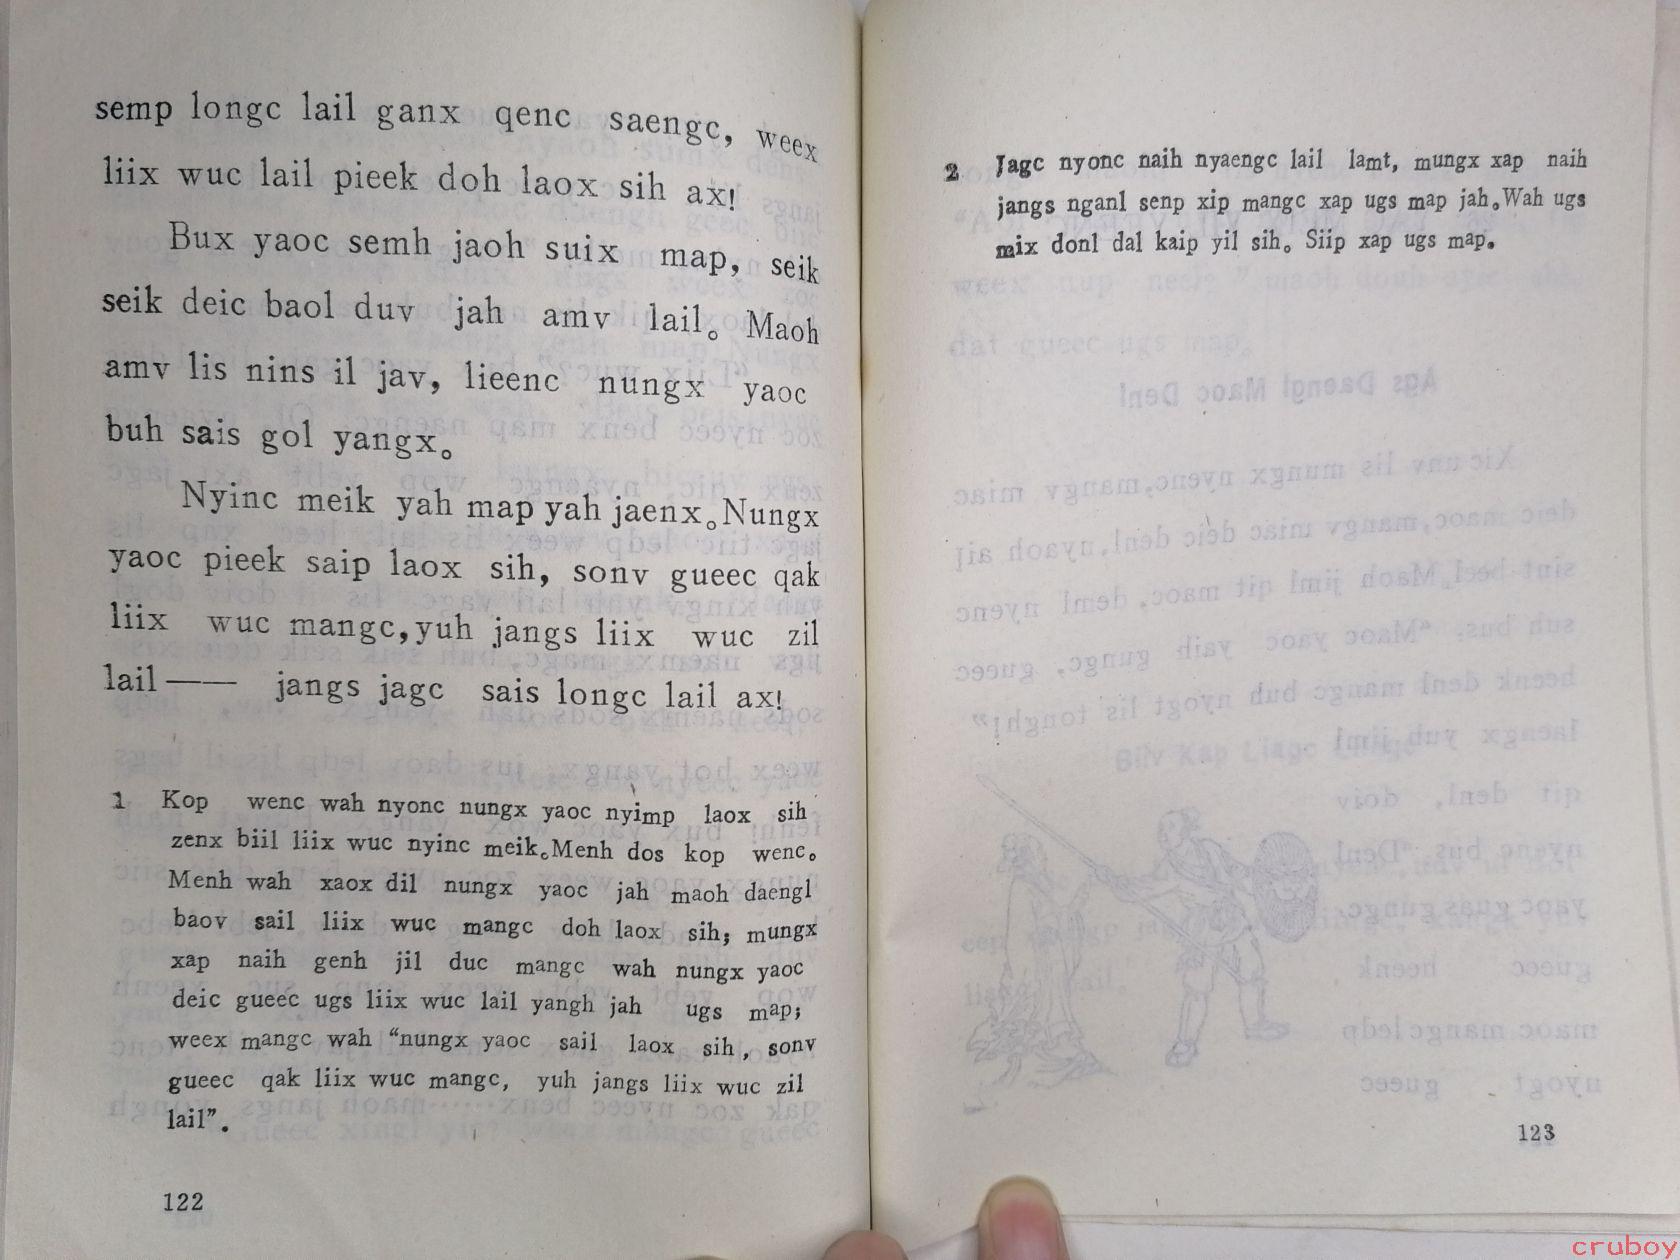 semp longc lail ganx qenc saengc, weex
liix wuc lail pieek doh laox sih ax!
Bux yaoc semh jaoh suix map, seik
seik deic baol duv jah amv lail。Maoh
amv lis nins il jav, lieenc nungx yaoc
buh sais gol yangx。
Nyinc meik yah map yah jaenx。Nungx
yaoc pieek saip laox sih, sonv gueec qak
liix wuc mangc, yuh jangs liix wuc zil
lail—— jangs jagc sais longc lail ax!
1 Kop wenc wah nyonc nungx yaoc nyimp laox sih
zenx biil liix wuc nyinc meik。Menh dos kop wenc。
Menh wah xaox dil nungx yaoc jah maoh daengl
baov sail liix wuc mangc doh laox sih; mungx
xap naih genh jil duc mangc wah nungx yaoc
deic gueec ugs liix wuc lail yangh jah ugs map;
weex mangc wah “nungx yaoc sail laox sih, sonv
gueec qak liix wuc mangc, yuh jangs liix wuc zil
lail”.
122
2 Jagc nyonc naih nyaengc lail lamt, mungx xap naih
jangs nganl senp xip mangc xap ugs map jah。Wah ugs
mix donl dal kaip yil sih。Siip xap ugs map。
123
cruboy